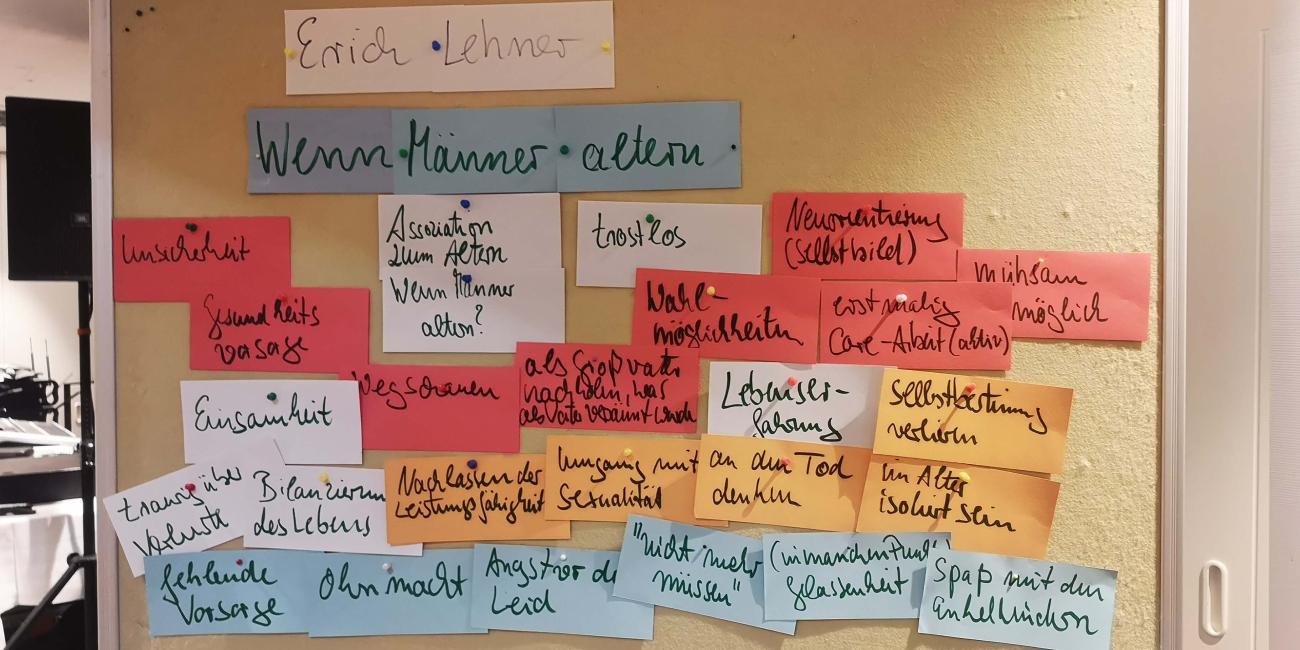 Erich Lehner
Wenn Männer altern
Assoziation
zum Altern
Wenn Männer
altern?
trostlos
Neuorientierung
(Selbstbild)
Unsicherheit
mühsam
möglich
Gesundheits
vorsorge
Wahl-
möglichkeiten
erstmalig
Care-Arbeit (aktiv)
Einsamkeit
Wegschauen
als Großvater
nachholen, was
als Vater versäumt wurde
Lebenser-
fahrung
Selbstbestimmung
verlieren
traurig über
Verluste
Bilanzierung
des Lebens
Nachlassen der
Leistungsfähigkeit
Umgang mit
Sexualität
an den Tod
denken
im Alter
isoliert sein
fehlende
Vorsorge
Ohnmacht
Angst vor dem
Leid
"nicht mehr
müssen"
(in manchen Punkten)
Gelassenheit
Spaß mit den
Enkelkindern